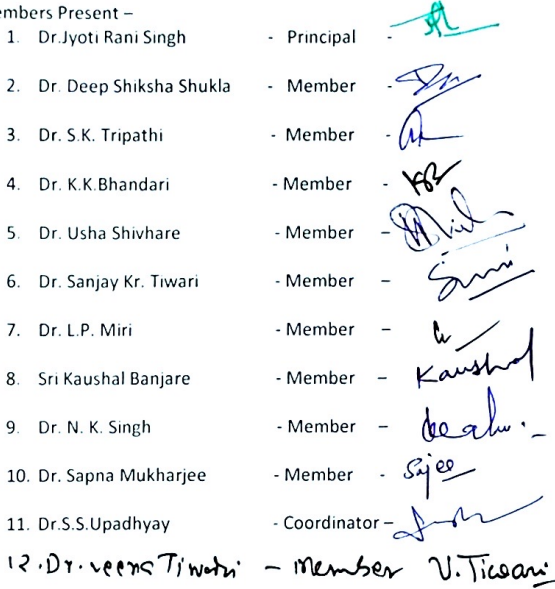 embers Present –
1. Dr.Jyoti Rani Singh - Principal -
2. Dr. Deep Shiksha Shukla - Member -
3. Dr. S.K. Tripathi - Member -
4. Dr. K.K.Bhandari - Member -
5. Dr. Usha Shivhare - Member –
6. Dr. Sanjay Kr. Tiwari - Member –
7. Dr. L.P. Miri - Member –
8. Sri Kaushal Banjare - Member – Kaushal
9. Dr. N. K. Singh - Member –
10. Dr. Sapna Mukharjee - Member -
11. Dr.S.S.Upadhyay - Coordinator –
12. Dr. Veena Tiwari - Member V. Tiwari